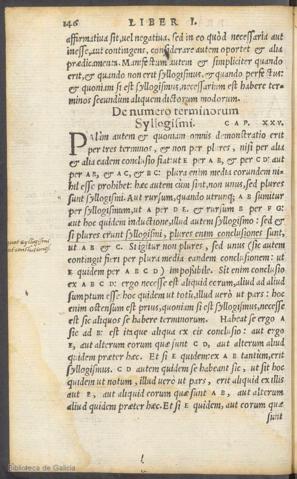 146 LIBER I.
affirmatiua sit, uel negatiua, sed in eo quòd necessaria aut
inesse, aut contingens, considerare autem oportet & alia
prædicamenta. Manifestum autem & simpliciter quando
erit, & quando non erit syllogismus, & quando perfectus:
& quoniam si est syllogismus, necessarium est habere ter-
minos secundùm aliquem dictorum modorum.
De numero terminorum
Syllogismi. CAP. XXV.
PAlàm autem & quoniam omnis demonstratio erit
per tres terminos, & non per plures, nisi per alia
& alia eadem conclusio fiat: ut E per A B, & per C D: aut
per A B, & A C, & B C: plura enim media eorundem ni-
hil esse prohibet: hæc autem cùm sint, non unus, sed plures
sunt syllogismi. Aut rursum, quando utrunq; A B sumitur
per syllogismum, ut A per D E, & rursum B per F G:
aut hoc quidem inductione, illud autem syllogismo: sed &
si plures erunt syllogismi, plures enim conclusiones sunt,
ut A B & C. Si igitur non plures, sed unus (sic autem
contingit fieri per plura media eandem conclusionem: ut
E quidem per A B C D) impossibile. Sit enim conclusio
ex A B C D: ergo necesse est aliquid eorum, aliud ad aliud
sumptum esse: hoc quidem ut totũ, illud uerò ut pars: hoc
enim ostensum est prius, quoniam si est syllogismus, necesse
est sic aliquos se habere terminorum. Habeat se ergo A
sic ad B: est itaque aliqua ex eis conclusio: aut ergo
E, aut alterum eorum quæ sunt C D, aut alterum aliud
quidem præter hæc. Et si E quidem: ex A B tantùm, erit
syllogismus. C D autem quidem se habeant sic, ut sit hoc
quidem ut notum, illud uero ut pars, erit aliquid ex illis
aut E, aut aliquid eorum quæ sunt A B, aut alterum
aliud quidem præter hæc. Et si E quidem, aut eorum quæ
sunt
Biblioteca de Galicia